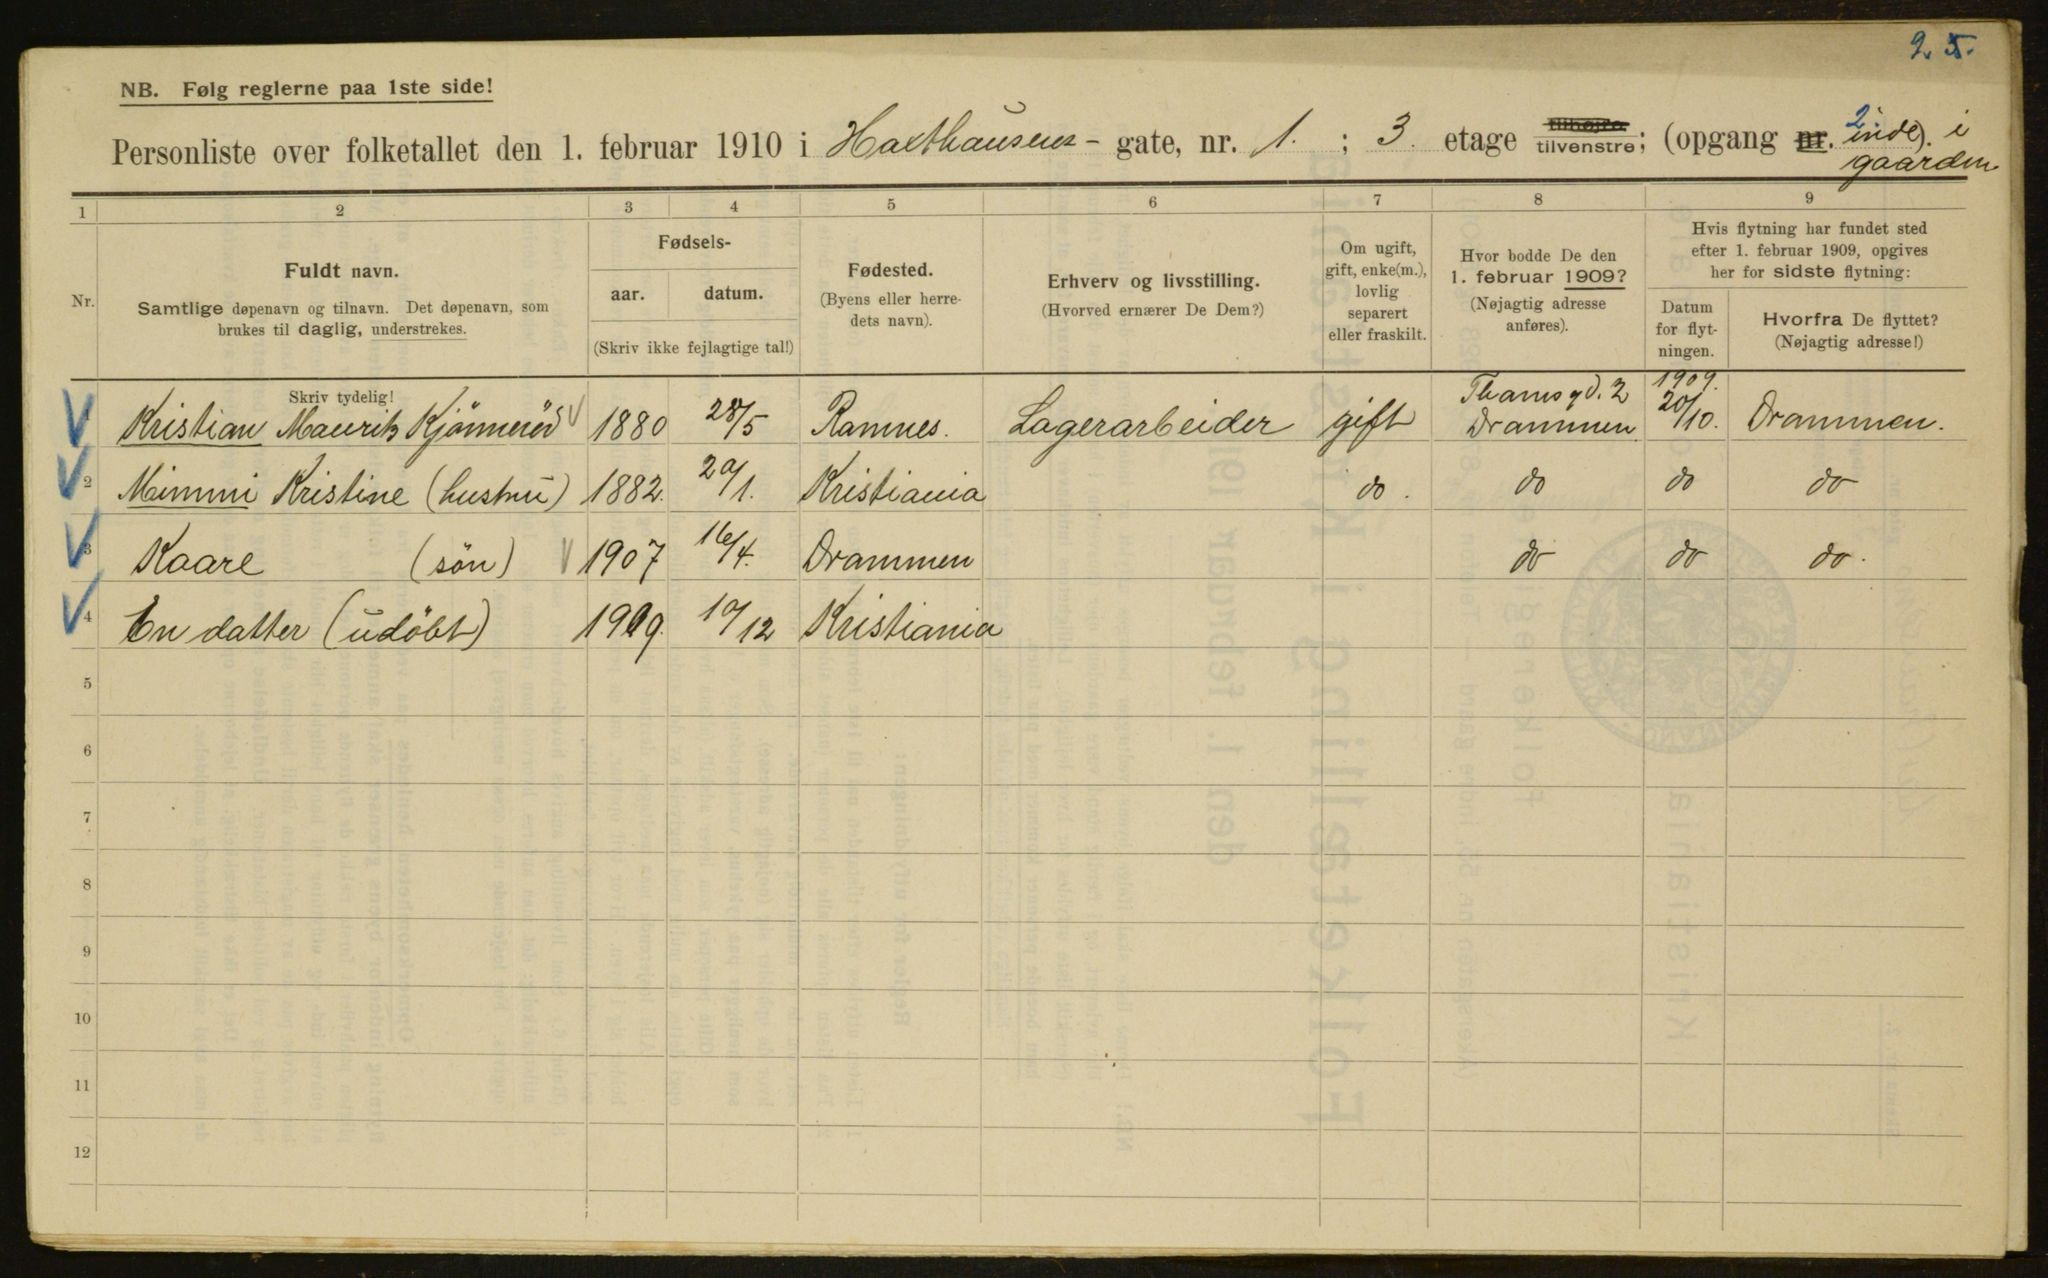 2. 5.
NB. Følg reglerne paa 1ste side!
Personliste over folketallet den 1. februar 1910 i Haxthausens - gate, nr. 1. ; 3. etage tilhøjre tilvenstre; (opgang nr. 2 inde). i gaarden
1 2 3 4 5 6 7 8 9
Nr.
Fuldt navn.
Samtlige døpenavn og tilnavn. Det døpenavn, som
brukes til daglig, understrekes.
Fødsels-
aar. datum.
(Skriv ikke fejlagtige tal!)
Fødested.
(Byens eller herre-
dets navn).
Erhverv og livsstilling.
(Hvorved ernærer De Dem?)
Om ugift,
gift, enke(m.),
lovlig
separert
eller fraskilt.
Hvor bodde De den
1. februar 1909?
(Nøjagtig adresse
anføres).
Hvis flytning har fundet sted
efter 1. februar 1909, opgives
her for sidste flytning:
Datum
for flyt-
ningen.
Hvorfra De flyttet?
(Nøjagtig adresse!)
Skriv tydelig!
1 Kristian Mauritz Kjönnerød 1880 28/5 Ramnes. Lagerarbeider gift Thamsgd. 2 Drammen. 1909. 20/10. Drammen.
2 Mimmi Kristine (hustru) 1882. 20/1. Kristiania do. do do do
3 Kaare (sön) 1907 16/4. Drammen do do do.
4 En datter (udöbt) 1909. 10/12 Kristiania
5
6
7
8
9
10
11
12